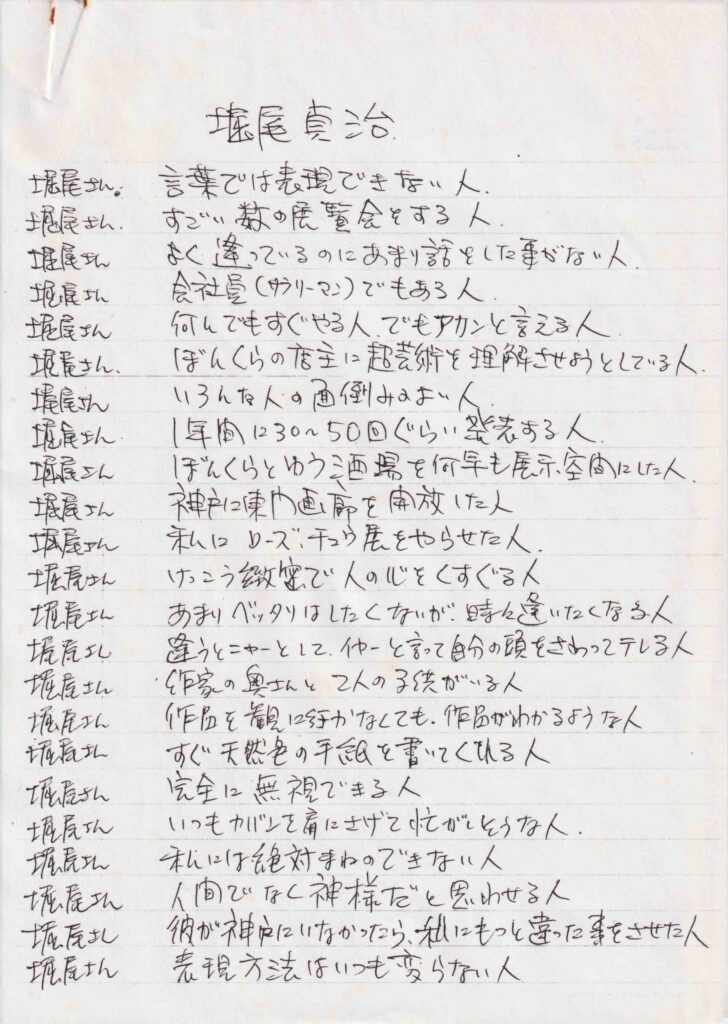 堀尾貞治
堀尾さん. 言葉では表現できない人.
堀尾さん. すごい数の展覧会をする人.
堀尾さん よく逢っているのにあまり話をした事がない人.
堀尾さん 会社員(サラリーマン)でもある人.
堀尾さん 何んでもすぐやる人、でもアカンと言える人
堀尾さん. ぼんくらの店主に超芸術を理解させようとしている人.
堀尾さん いろんな人の面倒みのよい人.
堀尾さん 1年間に30〜50回ぐらい発表する人.
堀尾さん ぼんくらとゆう酒場を何年も展示空間にした人.
堀尾さん 神戸に東門画廊を開放した人
堀尾さん 私にローズ.チュウ展をやらせた人.
堀尾さん けっこう緻密で人の心をくすぐる人
堀尾さん あまりベッタリはしたくないが、時に逢いたくなる人
堀尾さん 逢うとニャーとして、イヤーと言って自分の頭をさわってテレる人
堀尾さん 作家の奥さんと2人の子供がいる人
堀尾さん 作品を観に行かなくても、作品がわかるような人
堀尾さん すぐ天然色の手紙を書いてくれる人
堀尾さん 完全に無視できる人
堀尾さん いつもカバンを肩にさげて忙がしそうな人.
堀尾さん 私には絶対まねのできない人
堀尾さん 人間でなく神様だと思わせる人
堀尾さん 彼が神戸にいなかったら、私にもっと違った事をさせた人
堀尾さん 表現方法はいつも変らない人